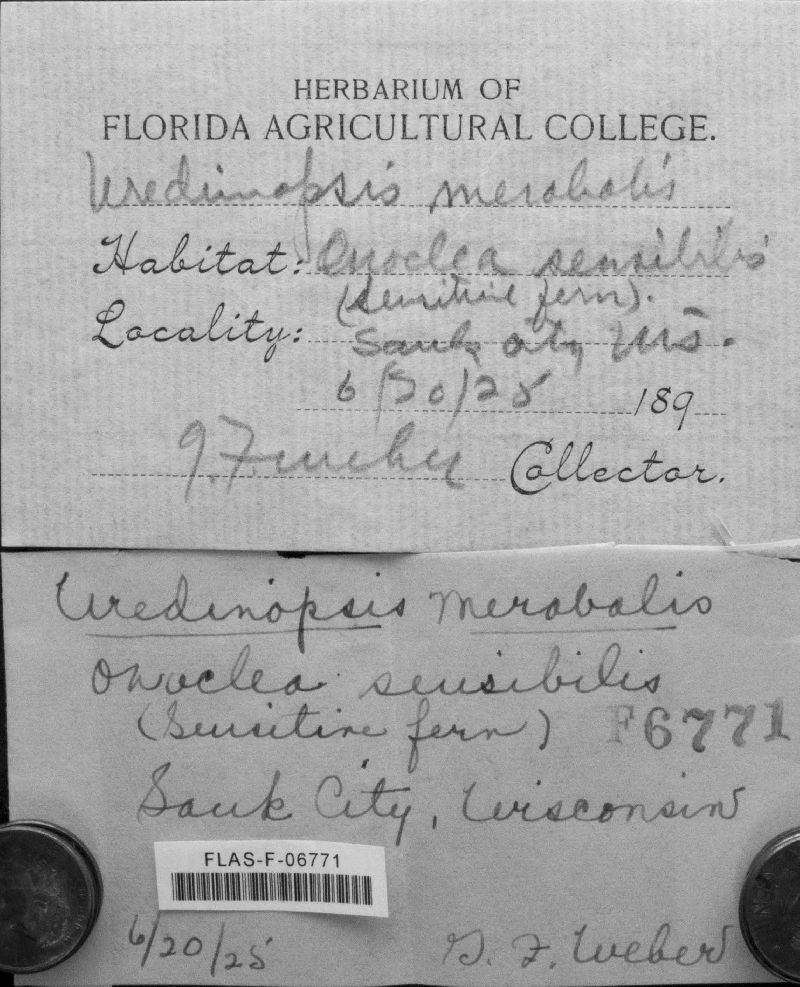 HERBARIUM OF
FLORIDA AGRICULTURAL COLLEGE.
Uredinopsis merabalis
Habitat: Onoclea sensibilis
(sensitive fern).
Locality: Sauk City Wis.
6/20/25 189
G. F. Weber Collector.
Uredinopsis merabalis
Onoclea sensibilis
(Sensitive fern) F6771
Sauk City, Wisconsin
FLAS-F-06771
6/20/25 G. F. Weber